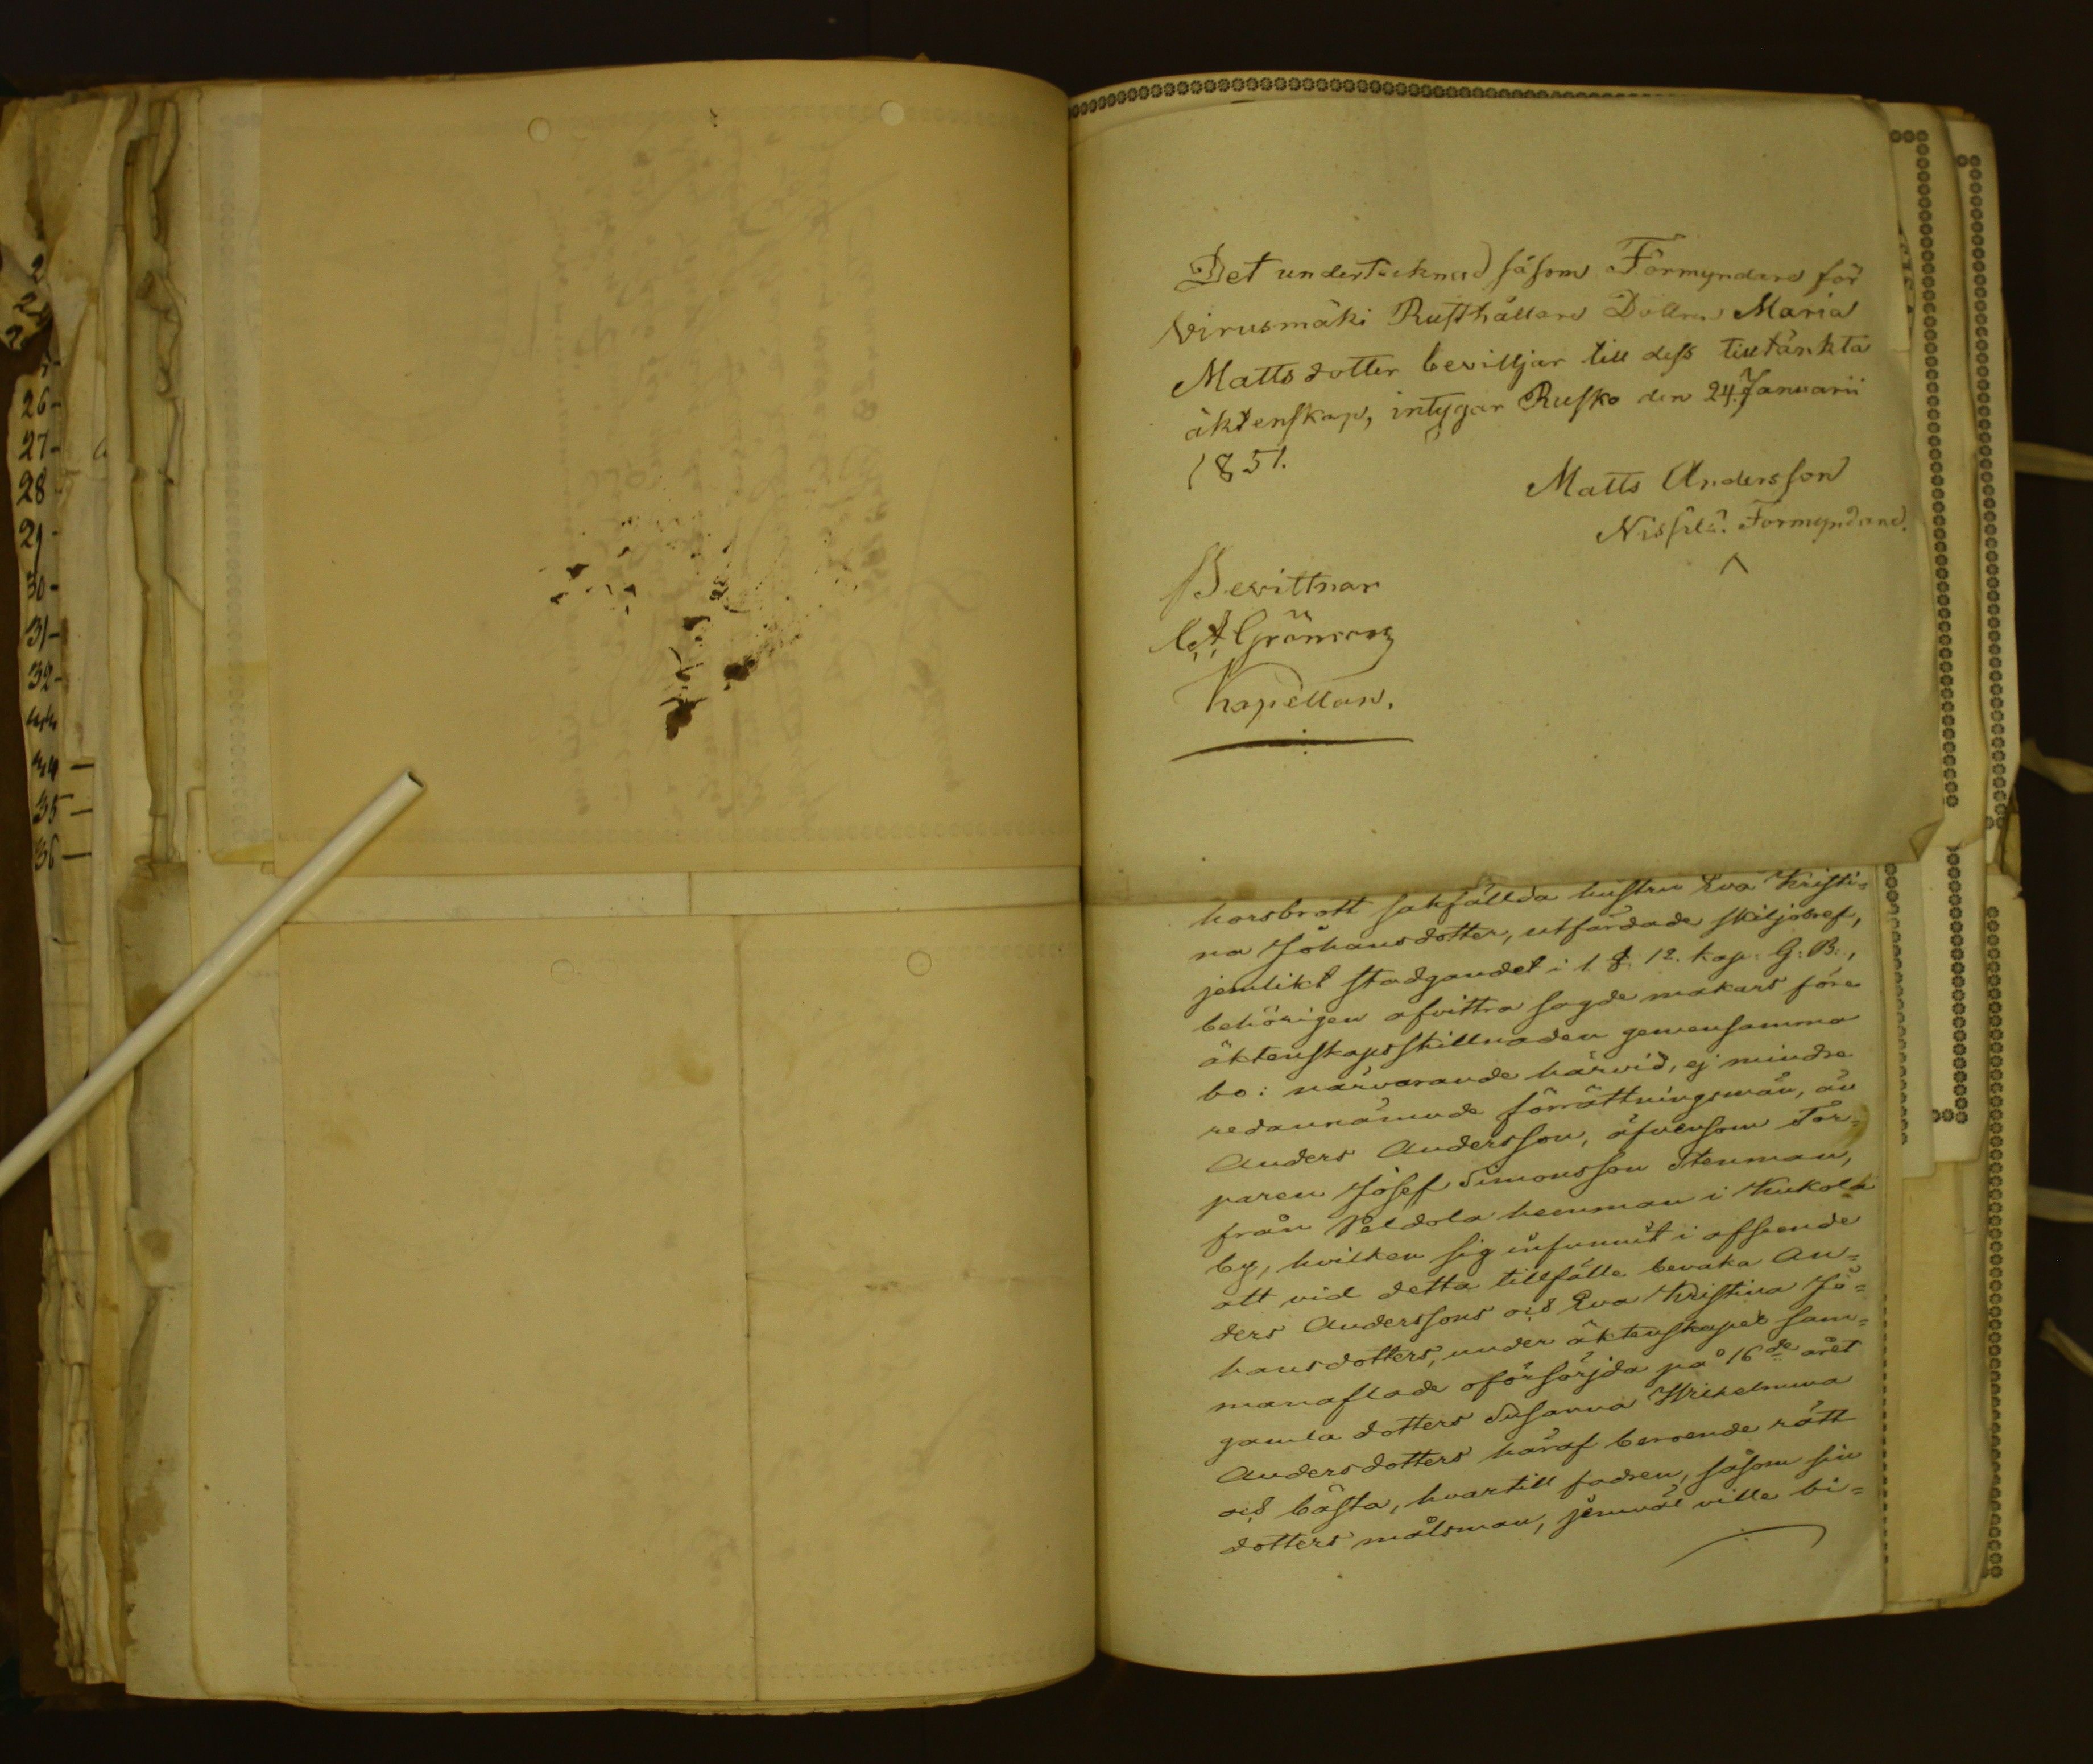 2
24
2
26-
27-
28
29-
30-
31-
32-
34 —
35 —
36 —
Det undertecknad såsom Förmyndare för
Virusmäki Rusthållare Dottren Maria
Matts dotter bevilljar till dess tilltänkta
äktenskap, intygar Rusko den 24. Januarii
1851.
Matts Andersson
Förmyndare.
Bevittnar
Kapellan.
horsbrott sakfällda hustru Eva Kristi=
na Johansdotter, utfärdade skiljobref,
jemlikt stadgandet i 1. §. 12. kap. G: B:,
behörigen afvittra sagde makars före
äktenskapsskillnaden gemensamma
bo: närvarande härvid, ej mindre
redannämnde förrättningsmän, än
Anders Andersson, äfvensom Tor=
paren Josef Simonsson Stenman,
från Peldola hemman i Kukola
by, hvilken sig infunnit i afseende
att vid detta tillfälle bevaka An=
ders Anderssons och Eva Kristina Jo=
hansdotters, under äktenskapet sam=
manaflade oförsörjda på 16de året
gamla dotters Susanna Wilhelmina
Andersdotters häraf beroende rätt
och bästa, hvartill fadren, såsom sin
dotters målsman, jemväl ville bi=